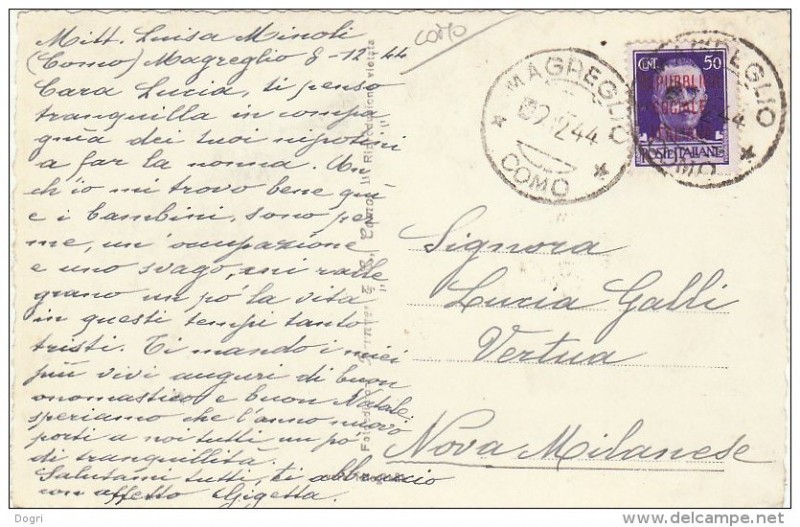 Mitt. Luisa Minoli
(Como) Magreglio 8-12-44
Cara Lucia, ti penso
tranquilla in compa
gnia dei tuoi nipotini
a far la nonna. An
ch'io mi trovo bene qui
e i bambini, sono per
me, un'occupazione
e uno svago, mi ralle
grano un po' la vita
in questi tempi tanto
tristi. Ti mando i miei
più vivi auguri di buon
onomastico e buon Natale,
speriamo che l'anno nuovo
porti a noi tutti un po'
di tranquillità.
Salutami tutti, ti abbraccio
con affetto Gigetta.
Riproduzione vietata
como
MAGREGLIO
12.44
COMO
CENT. 50
REPUBBLICA
SOCIALE
ITALIANA
POSTE ITALIANE
MAGREGLIO
COMO
Signora
Lucia Galli
Vertua
Nova Milanese
Dogri
delcampe.net